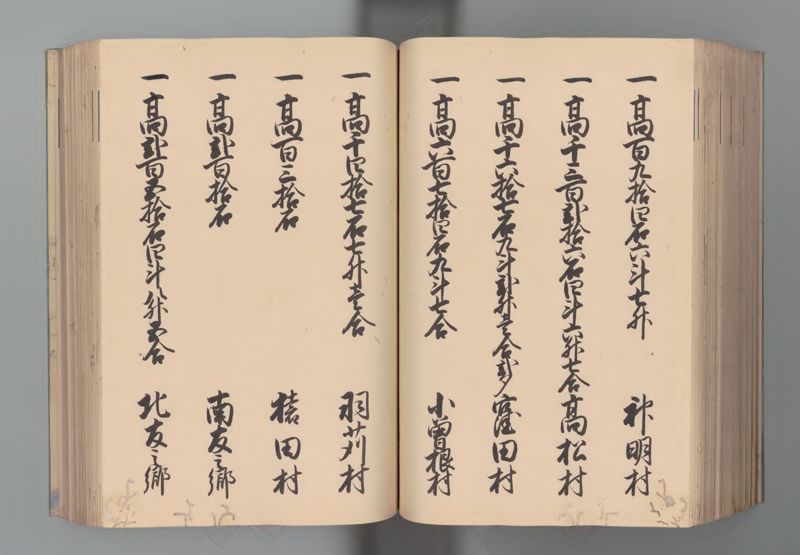 一高百九拾四石六斗七升 神明村
一高千三百弐拾六石四斗六升七合 高松村
一高千六拾七石九斗弐升壱合弐夕 窪田村
一高六百七拾四石九斗七合 小曽根村
一高千四拾七石七升壱合 羽刈村
一高百三拾石 猿田村
一高弐百拾石 南友之郷
一高弐百五拾石四斗八升五合 北友之郷